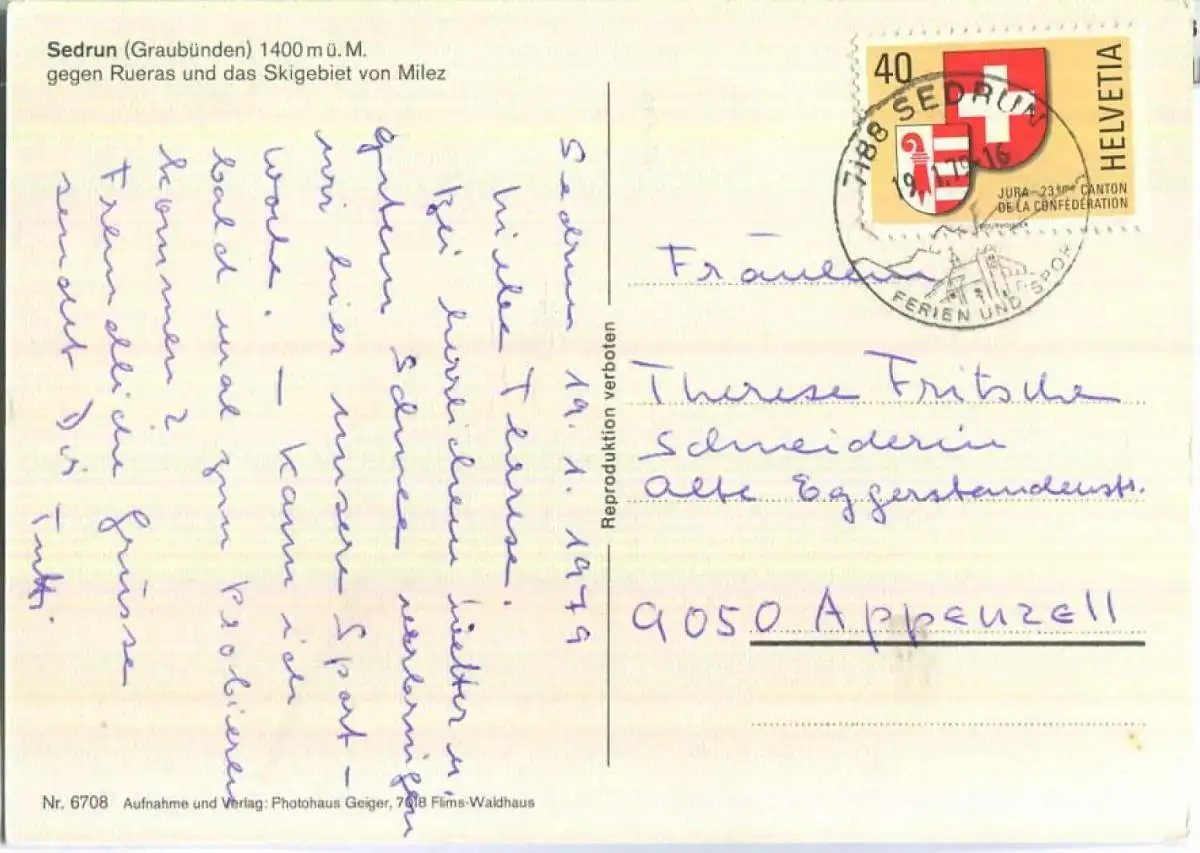 Sedrun (Graubünden) 1400 m ü. M.
gegen Rueras und das Skigebiet von Milez
Sedrun 19. 1. 1979
Liebe Therese.
Bei herrlichem Wetter u.
gutem Schnee verbringen
wir hier unsere Sport-
woche. – Kann ich
bald mal zum Probieren
kommen?
Freundliche Grüsse
sendet Dir
Reproduktion verboten
40
HELVETIA
JURA – 23ème CANTON
DE LA CONFÉDÉRATION
7188 SEDRUN
19.1.79-16
FERIEN UND SPOR
Fräulein
Therese Fritsche
Schneiderin
Alte Eggerstandenstr.
9050 Appenzell
Nr. 6708 Aufnahme und Verlag: Photohaus Geiger, 7018 Flims-Waldhaus